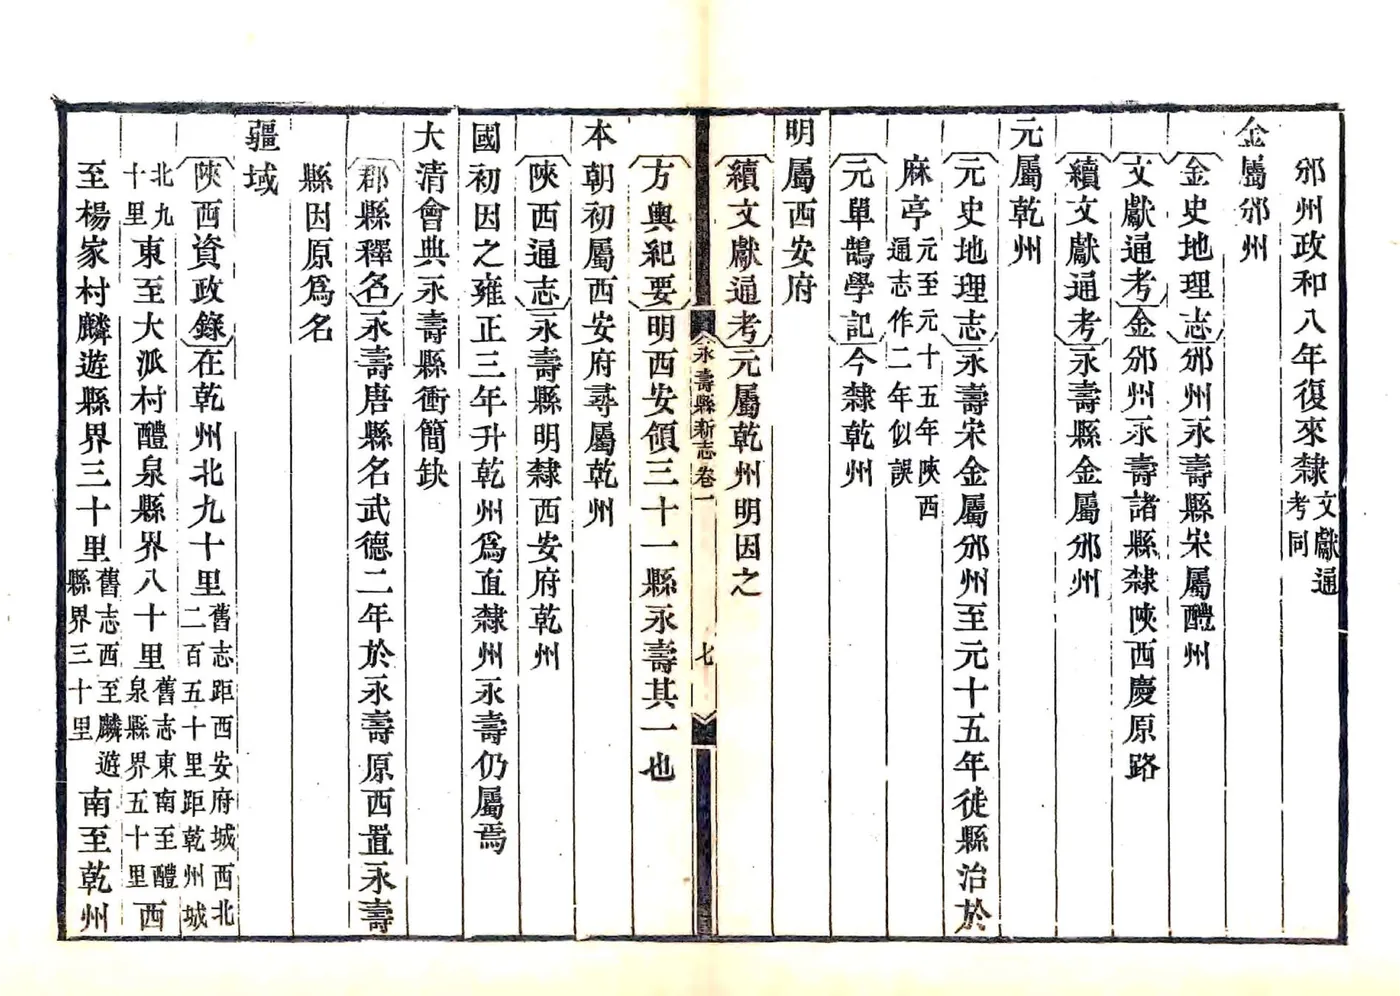 邠州政和八年復來隸文獻通考同
金屬邠州
金史地理志邠州永壽縣宋屬醴州
文獻通考金邠州永壽諸縣隸陝西慶原路
續文獻通考永壽縣金屬邠州
元屬乾州
元史地理志永壽宋金屬邠州至元十五年徙縣治於
麻亭元至元十五年陝西通志作二年似誤
元單鵠學記今隸乾州
明屬西安府
續文獻通考元屬乾州明因之
永壽縣新志 卷一 七
方輿紀要明西安領三十一縣永壽其一也
本朝初屬西安府尋屬乾州
陝西通志永壽縣明隸西安府乾州
國初因之雍正三年升乾州爲直隸州永壽仍屬焉
大清會典永壽縣衝簡缺
郡縣釋名永壽唐縣名武德二年於永壽原西置永壽
縣因原爲名
疆域
陝西資政錄在乾州北九十里舊志距西安府城西北二百五十里距乾州城
北九十里東至大派村醴泉縣界八十里舊志東南至醴泉縣界五十里西
至楊家村麟遊縣界三十里舊志西至麟遊縣界三十里南至乾州